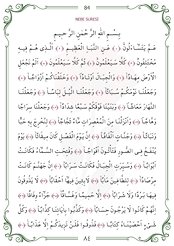 84
NEBE SURESİ
بِسْمِ اللّٰهِ الرَّحْمٰنِ الرَّحِيمِ
عَمَّ يَتَسَاءَلُونَ ﴿١﴾ عَنِ النَّبَاِ الْعَظِيمِ ﴿٢﴾ اَلَّذِي هُمْ فِيهِ
مُخْتَلِفُونَ ﴿٣﴾ كَلَّا سَيَعْلَمُونَ ﴿٤﴾ ثُمَّ كَلَّا سَيَعْلَمُونَ ﴿٥﴾ اَلَمْ نَجْعَلِ
الْاَرْضَ مِهَادًا ﴿٦﴾ وَالْجِبَالَ اَوْتَادًا ﴿٧﴾ وَخَلَقْنَاكُمْ اَزْوَاجًا ﴿٨﴾
وَجَعَلْنَا نَوْمَكُمْ سُبَاتًا ﴿٩﴾ وَجَعَلْنَا الَّيْلَ لِبَاسًا ﴿١٠﴾ وَجَعَلْنَا
النَّهَارَ مَعَاشًا ﴿١١﴾ وَبَنَيْنَا فَوْقَكُمْ سَبْعًا شِدَادًا ﴿١٢﴾ وَجَعَلْنَا سِرَاجًا
وَهَّاجًا ﴿١٣﴾ وَاَنْزَلْنَا مِنَ الْمُعْصِرَاتِ مَاءً ثَجَّاجًا ﴿١٤﴾ لِنُخْرِجَ بِهِ حَبًّا
وَنَبَاتًا ﴿١٥﴾ وَجَنَّاتٍ اَلْفَافًا ﴿١٦﴾ اِنَّ يَوْمَ الْفَصْلِ كَانَ مِيقَاتًا ﴿١٧﴾ يَوْمَ
يُنْفَخُ فِي الصُّورِ فَتَأْتُونَ اَفْوَاجًا ﴿١٨﴾ وَفُتِحَتِ السَّمَاءُ فَكَانَتْ
اَبْوَابًا ﴿١٩﴾ وَسُيِّرَتِ الْجِبَالُ فَكَانَتْ سَرَابًا ﴿٢٠﴾ اِنَّ جَهَنَّمَ كَانَتْ
مِرْصَادًا ﴿٢١﴾ لِلطَّاغِينَ مَاٰبًا ﴿٢٢﴾ لَابِثِينَ فِيهَا اَحْقَابًا ﴿٢٣﴾ لَا يَذُوقُونَ
فِيهَا بَرْدًا وَلَا شَرَابًا ﴿٢٤﴾ اِلَّا حَمِيمًا وَغَسَّاقًا ﴿٢٥﴾ جَزَاءً وِفَاقًا ﴿٢٦﴾
اِنَّهُمْ كَانُوا لَا يَرْجُونَ حِسَابًا ﴿٢٧﴾ وَكَذَّبُوا بِاٰيَاتِنَا كِذَّابًا ﴿٢٨﴾ وَكُلَّ
شَيْءٍ اَحْصَيْنَاهُ كِتَابًا ﴿٢٩﴾ فَذُوقُوا فَلَنْ نَزِيدَكُمْ اِلَّا عَذَابًا ﴿٣٠﴾
٨٤